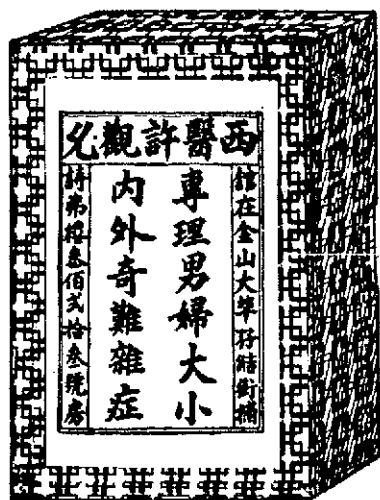 西醫許觀
舘在金山大埠孖結街補
專理男婦大小
内外奇難雜症
詩弗樓叁佰弍拾叁號房